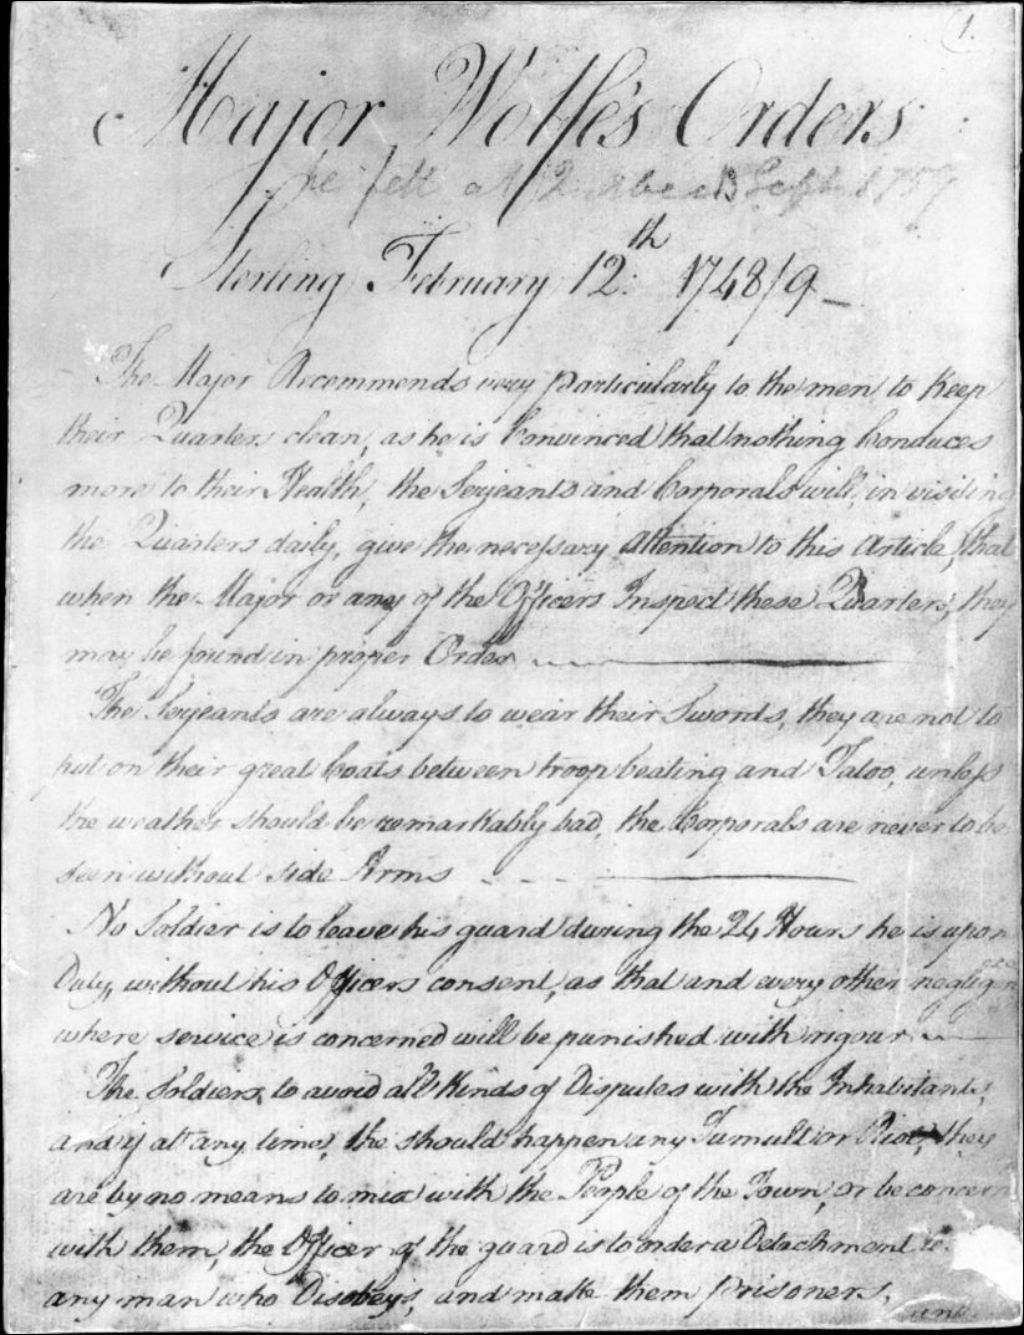 1.
Major Wolfe's Orders
he fell at Quebec 13 Sept. 1759
Sterling February 12th: 1748/9
The Major Recommends very particularly to the men to keep
their Quarters clean, as he is Convinced that nothing Conduces
more to their Health, the Serjeants and Corporals will, in visiting
the Quarters daily, give the necessary Attention to this Article, that
when the Major or any of the Officers Inspect these Quarters, they
may be found in proper Order
The Serjeants are always to wear their Swords, they are not to
put on their great Coats between troop beating and Tatoo, unless
the weather should be remarkably bad, the Corporals are never to be
seen without side Arms
No Soldier is to leave his guard during the 24 Hours he is upon
Duty, without his Officers consent, as that and every other negligence
where service is concerned will be punished with rigour
The Soldiers, to avoid all kinds of Disputes with the Inhabitants,
and if at any time, the should happen any Tumult or Riot, they
are by no means to mix with the People of the Town, or be concern
with them, the Officer of the guard is to order a Detachment to
any man who Disobeys, and make them prisoners,